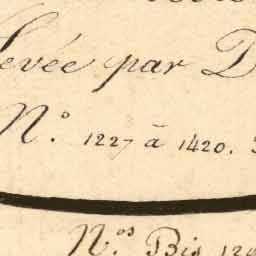 levée par D
N.° 1227 à 1420.
N.os Bis 120